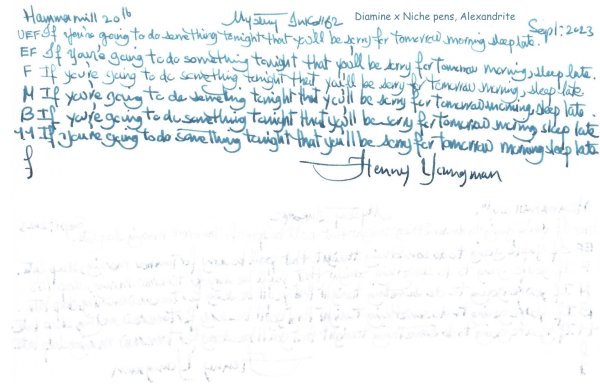 Hammermill 20lb Mystery Ink #162 Diamine x Niche pens, Alexandrite Sept: 2023
UEF If you're going to do something tonight that you'll be sorry for tomorrow morning sleep late.
EF If you're going to do something tonight that you'll be sorry for tomorrow morning, sleep late.
F If you're going to do something tonight that you'll be sorry for tomorrow morning, sleep late
M If you're going to do something tonight that you'll be sorry for tomorrow morning, sleep late.
B If you're going to do something tonight that you'll be sorry for tomorrow morning sleep late
If you're going to do something tonight that you'll be sorry for tomorrow morning sleep late
Henny Youngman